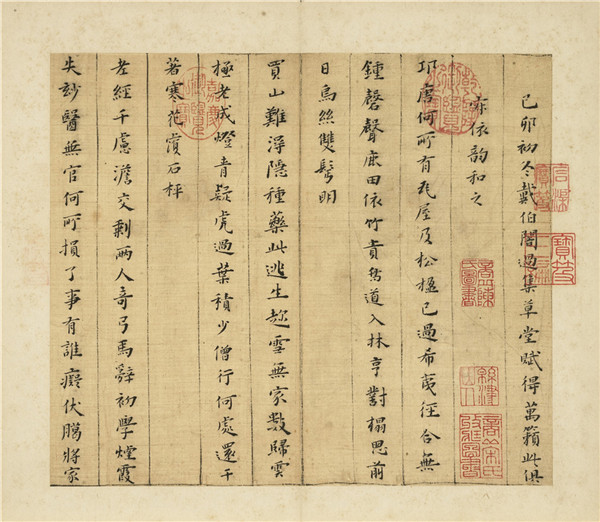 己卯初冬戴伯闇過集草堂賦得萬籟此俱
寂依韵和之
何所有瓦屋及松楹已過希夷徑合無
鍾磬聲田依竹道入林亨對榻思前
日烏絲雙鬢明
買山難淂隱種藥此逃生趂雪無家数歸雲
極老成燈青疑虎過葉積少僧行何處還干
著寒花覆石枰
老經千慮澹交剩兩人奇弓馬辭初學煙霞
失玅醫無官何所損了事有誰癡伏鵩將家